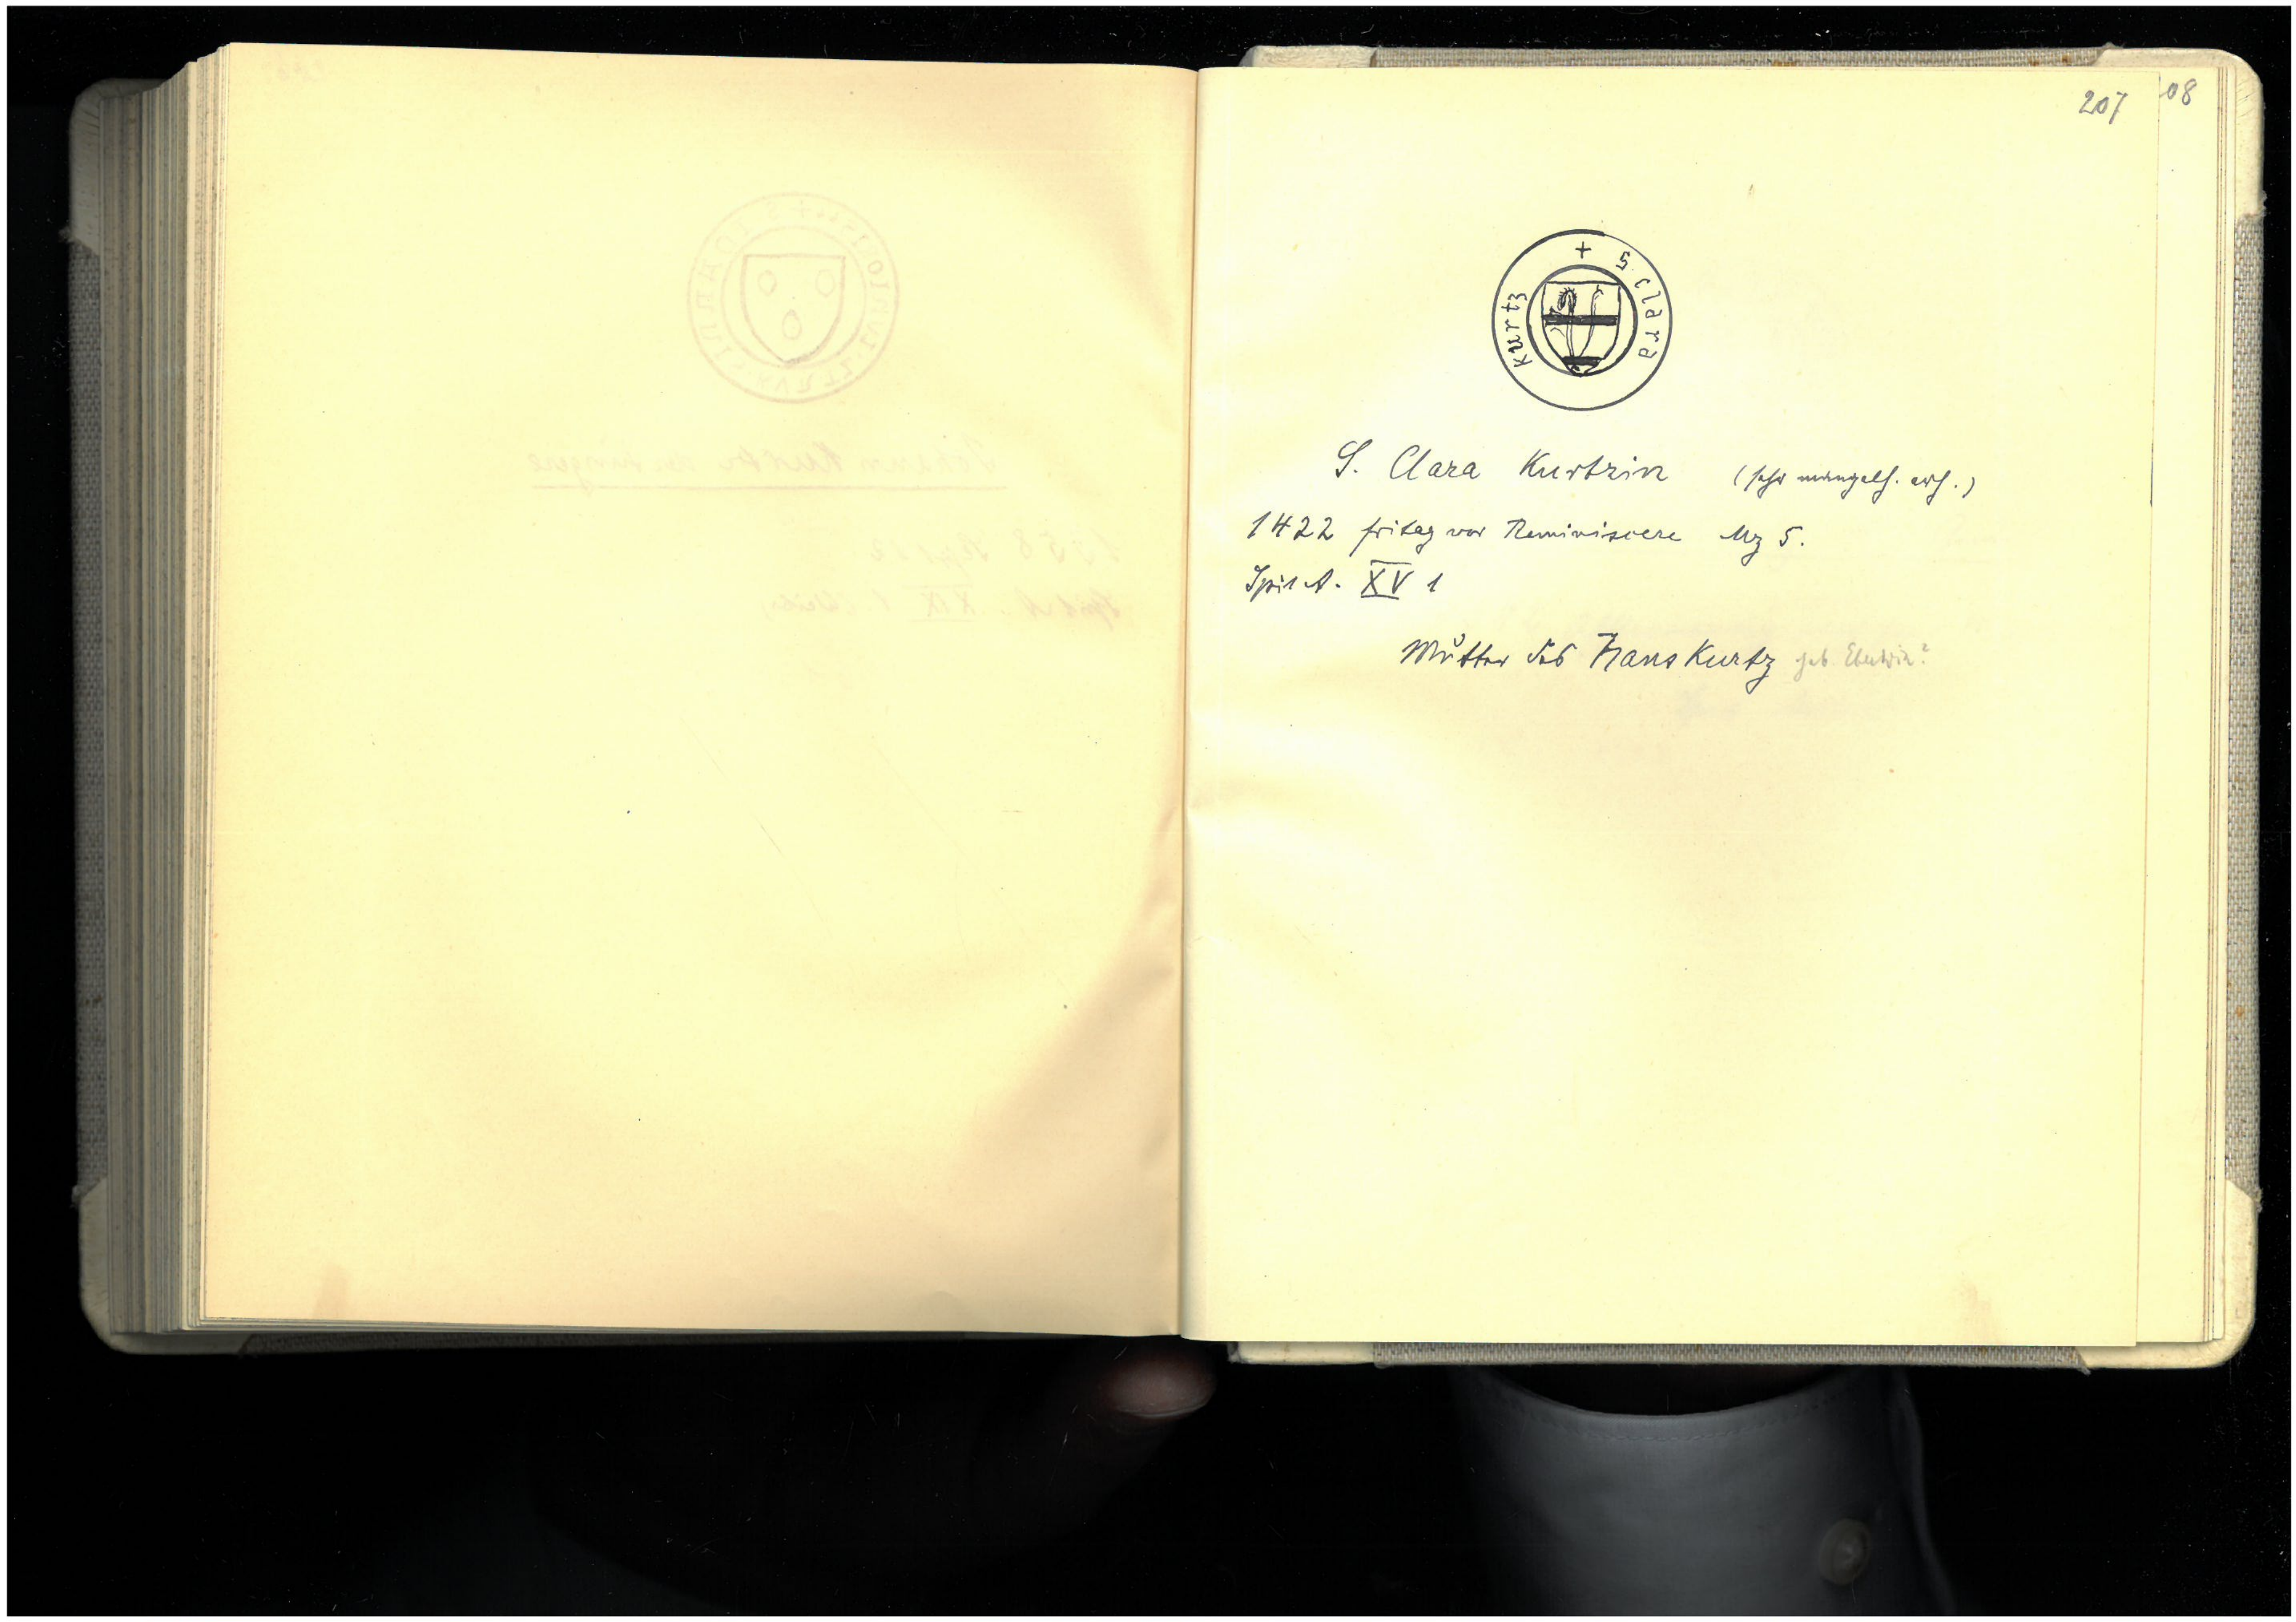 207
08
+ S. clara
kurtz
S. Clara Kurtzin (sehr mangelh. erh.)
1422 fritag vor Reminiscere Mz 5.
Spit A. XV 1
Mutter des Hans Kurtz geb.